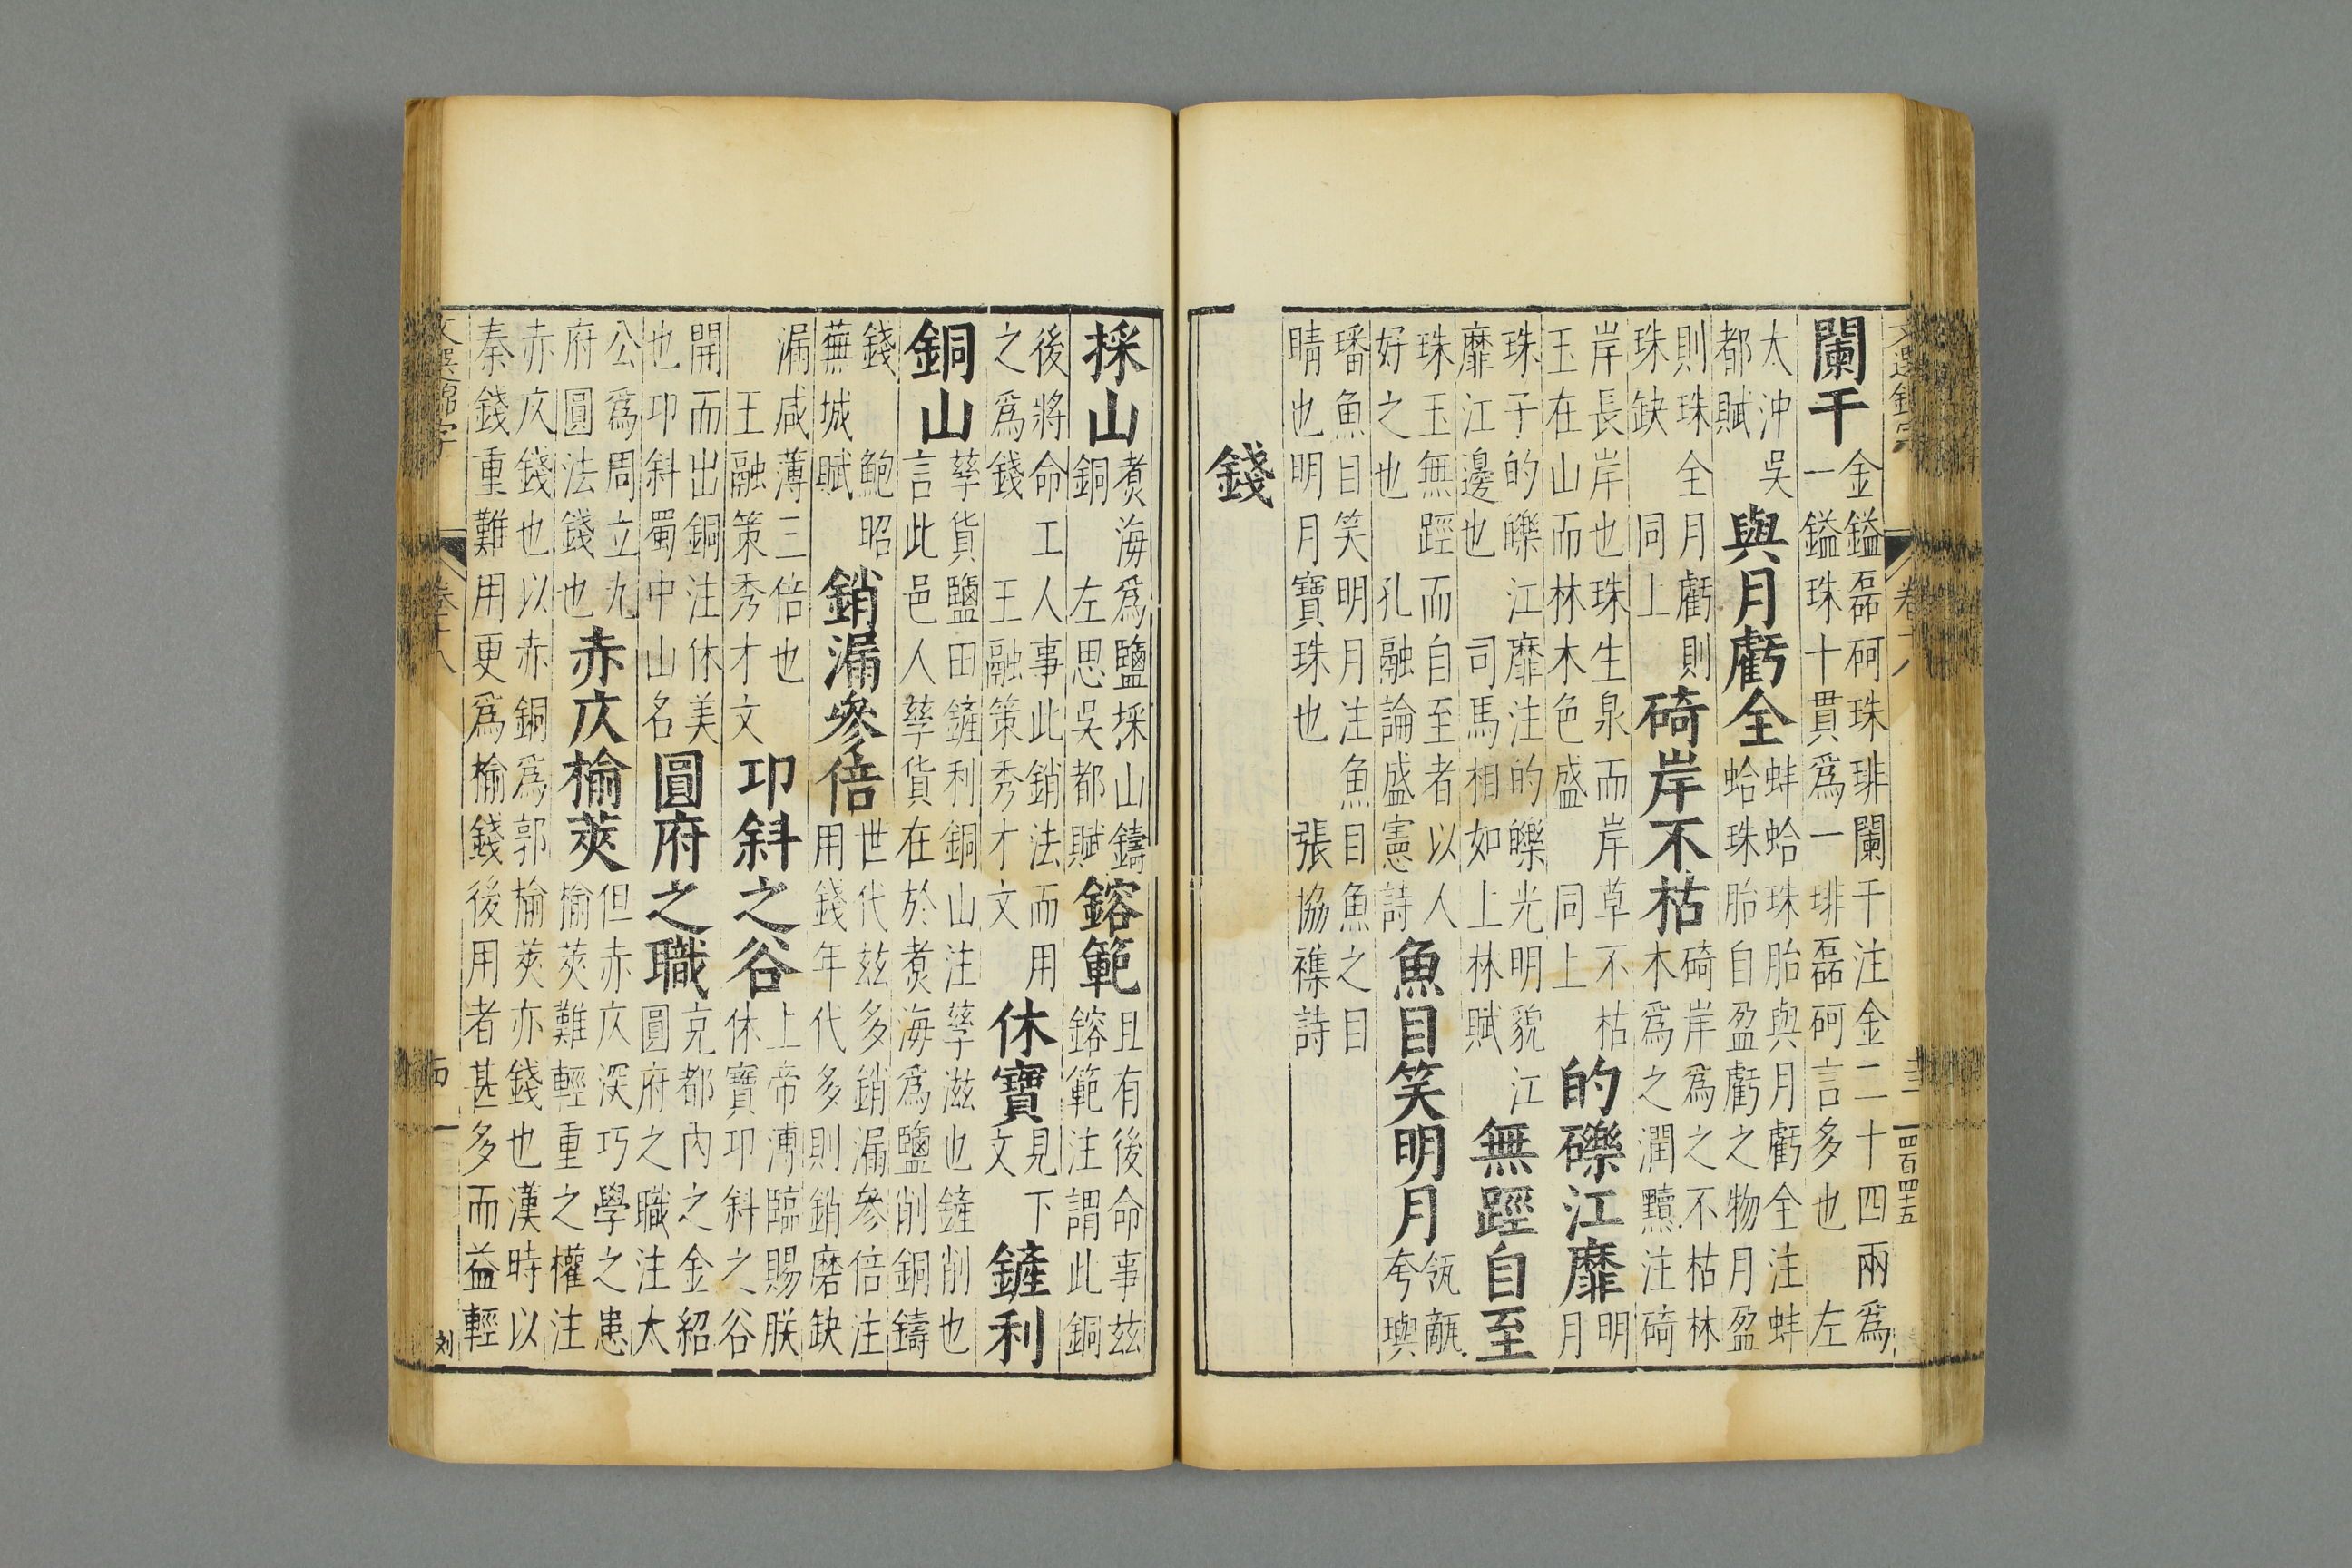 卷十八
四百四十五
闌干
金鎰磊砢珠琲闌干注金二十四兩爲
一鎰珠十貫爲一琲磊砢言多也 左
太沖吳
都賦
與月虧全
蚌蛤珠胎與月虧全注蚌
蛤珠胎自盈虧之物月盈
則珠全月虧則
珠缺 同上
碕岸不枯
碕岸爲之不枯林
木爲之潤黷注碕
岸長岸也珠生泉而岸草不枯
玉在山而林木色盛 同上
的礫江靡
明
月
珠子的皪江靡注的皪光明貌江
靡江邊也 司馬相如上林賦
無踁自至
珠玉無踁而自至者以人
好之也 孔融論盛憲詩
魚目笑明月
瓴甋
夸璵
璠魚目笑明月注魚目魚之目
睛也明月寶珠也 張協襍詩
錢
採山
煑海爲鹽採山鑄
銅 左思吳都賦
鎔範
且有後命事茲
鎔範注謂此銅
後將命工人事此銷法而用
之爲錢 王融策秀才文
休寶
見下
文
鏟利
銅山
孳貨鹽田鏟利銅山注孳滋也鏟削也
言此邑人孳貨在於煑海爲鹽削銅鑄
錢 鮑昭
蕪城賦
銷漏參倍
世代茲多銷漏參倍注
用錢年代多則銷磨缺
漏咸薄三倍也
王融策秀才文
卭斜之谷
上帝溥臨賜朕
休寶卭斜之谷
開而出銅注休美
也卭斜蜀中山名
圓府之職
克都內之金紹
圓府之職注太
公爲周立九
府圓法錢也
赤仄榆莢
但赤仄深巧學之患
榆莢難輕重之權注
赤仄錢也以赤銅爲郭榆莢亦錢也漢時以
秦錢重難用更爲榆錢後用者甚多而益輕
文選錦字
卷十八
刘